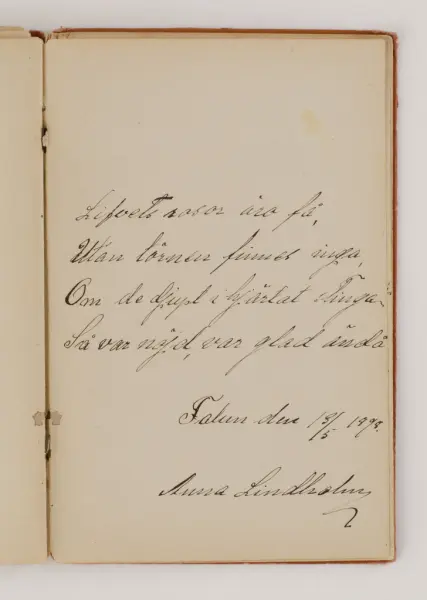 Lifvets rosor äro få,
Utan törnen finnes inga,
Om de djupt i hjärtat stinga
Så var nöjd, var glad ändå
Falun den 13/5 1898.
Anna Lindholm